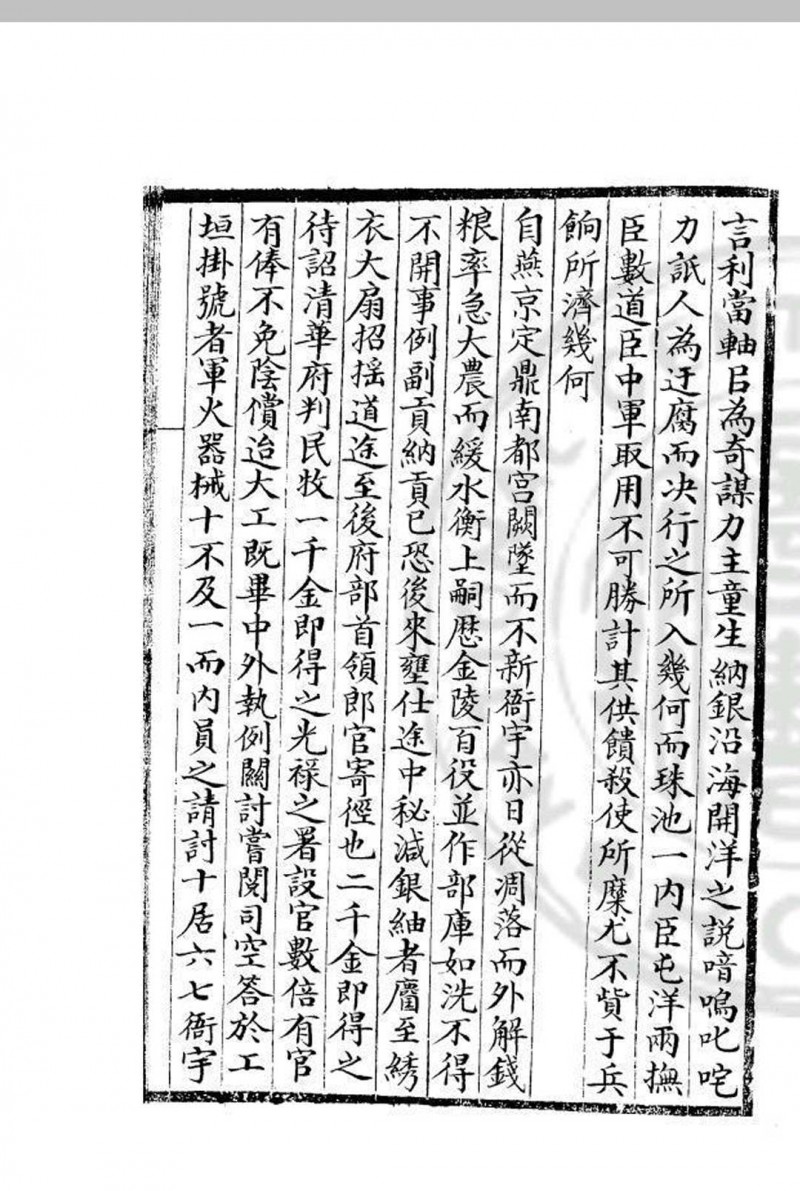 言利當軸㠯為奇謀力主童生納銀沿海開洋之説喑嗚叱咤
力詆人為迂腐而决行之所入幾何而珠池一内臣屯洋兩撫
臣數道臣中軍取用不可勝計其供饋殺使所糜尤不貲于兵
餉所濟幾何
自燕京定鼎南都宫闕墜而不新衙宇亦日從凋落而外解錢
粮率急大農而緩水衡上嗣歴金陵百役並作部庫如洗不得
不開事例副貢納貢已恐後來壅仕途中秘減銀紬者麕至綉
衣大扇招揺道途至後府部首領郎官寄徑也二千金即得之
待詔清華府判民牧一千金即得之光禄之署設官數倍有官
有俸不免陰償迨大工既畢中外執例關討嘗閱司空答於工
垣掛號者軍火器械十不及一而内員之請討十居六七衙宇